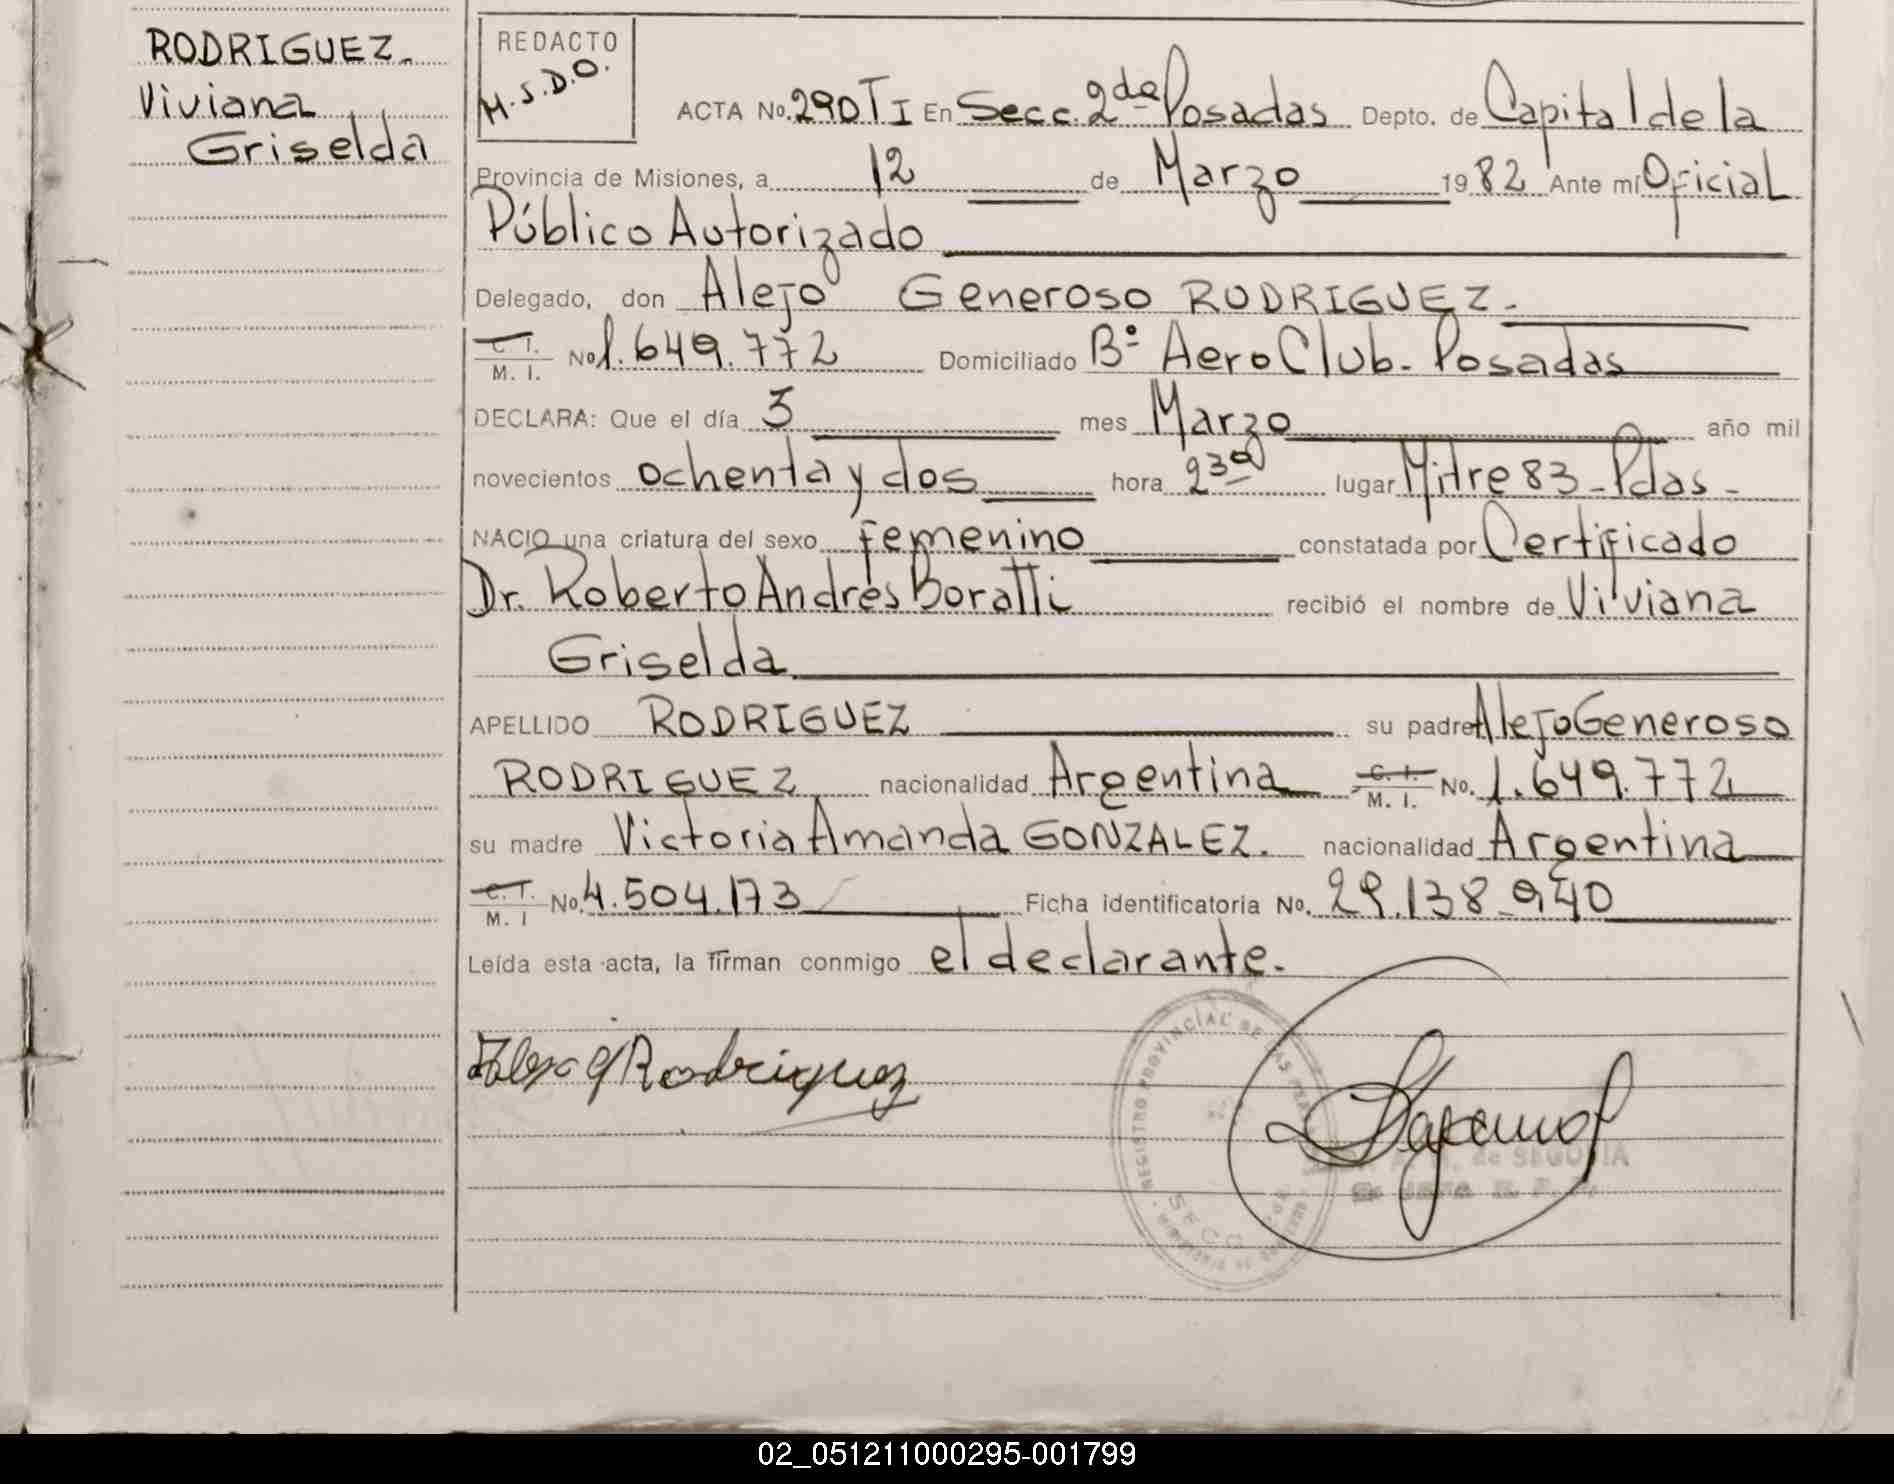 RODRIGUEZ.
Viviana
Griselda
REDACTO
H.S.D.O.
ACTA No. 290 T I En Secc. 2da Posadas Depto. de Capital de la
Provincia de Misiones, a 12 de Marzo 19 82 Ante mí Oficial
Público Autorizado
Delegado, don Alejo Generoso RODRIGUEZ.
C. I.
M. I. No 1.649.772 Domiciliado Bº Aero Club. Posadas
DECLARA: Que el día 3 mes Marzo año mil
novecientos ochenta y dos hora 23 lugar Mitre 83 - Pdas -
NACIO una criatura del sexo femenino constatada por Certificado
Dr. Roberto Andrés Boratti recibió el nombre de Viviana
Griselda
APELLIDO RODRIGUEZ su padre Alejo Generoso
RODRIGUEZ nacionalidad Argentina C. I. M. I. No. 1.649.772
su madre Victoria Amanda GONZALEZ. nacionalidad Argentina
C. I.
M. I No. 4.504.173 Ficha identificatoria No. 29.138.940
Leída esta acta, la firman conmigo el declarante.
Alejo G Rodriguez
REGISTRO PROVINCIAL DE LAS
de SEGOVIA
02_051211000295-001799